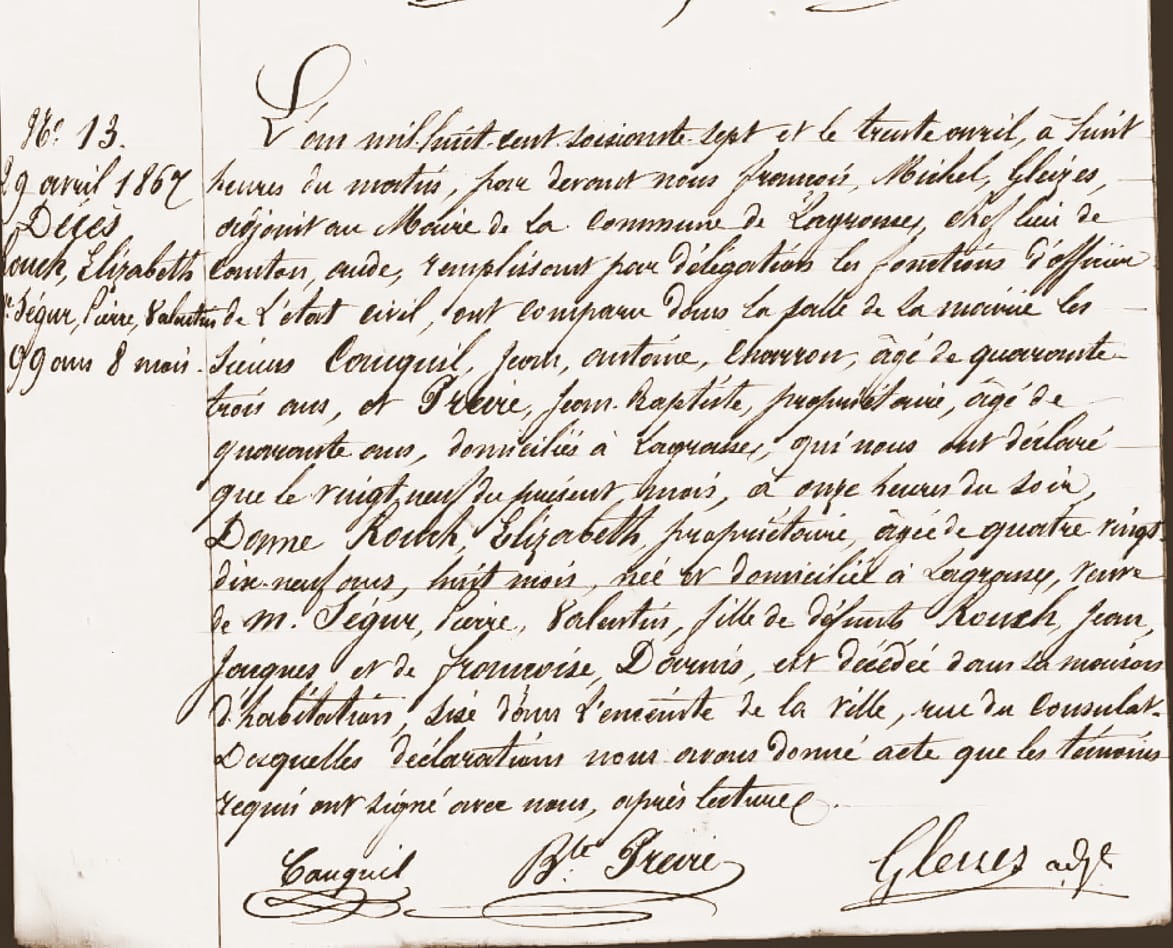 N.o 13.
29 avril 1867
Décès
Rouch, Elizabeth
Ve. Ségur, Pierre, Valentin
99 ans 8 mois.
L'an mil huit-cent soixante-sept et le trente avril, à huit
heures du matin, par devant nous françois, Michel, Gleizes,
adjoint au Maire de la commune de Lagrasse, chef lieu de
canton, aude, remplissant par délégation les fonctions d'officier
de L'état civil, ont comparu dans la salle de la mairie les
sieurs Cauquil, Jean, antoine, charron, âgé de quarante-
trois ans, et Preire, Jean-Baptiste, propriétaire, âgé de
quarante ans, domiciliés à Lagrasse, qui nous ont déclaré
que le vingt neuf du présent mois, à onze heures du soir,
Dame Rouch, Elizabeth, propriétaire, âgée de quatre vingt
dix-neuf ans, huit mois, née et domiciliée à Lagrasse, veuve
de m. Ségur, Pierre, Valentin, fille de défunts Rouch, Jean,
Jacques et de françoise, est décédée dans sa maison
d'habitation, sise dans l'enceinte de la ville, rue du Consulat.
Desquelles déclarations nous avons donné acte que les témoins
requis ont signé avec nous, après lecture.
Cauquil Bte. Preire Gleizes adjt